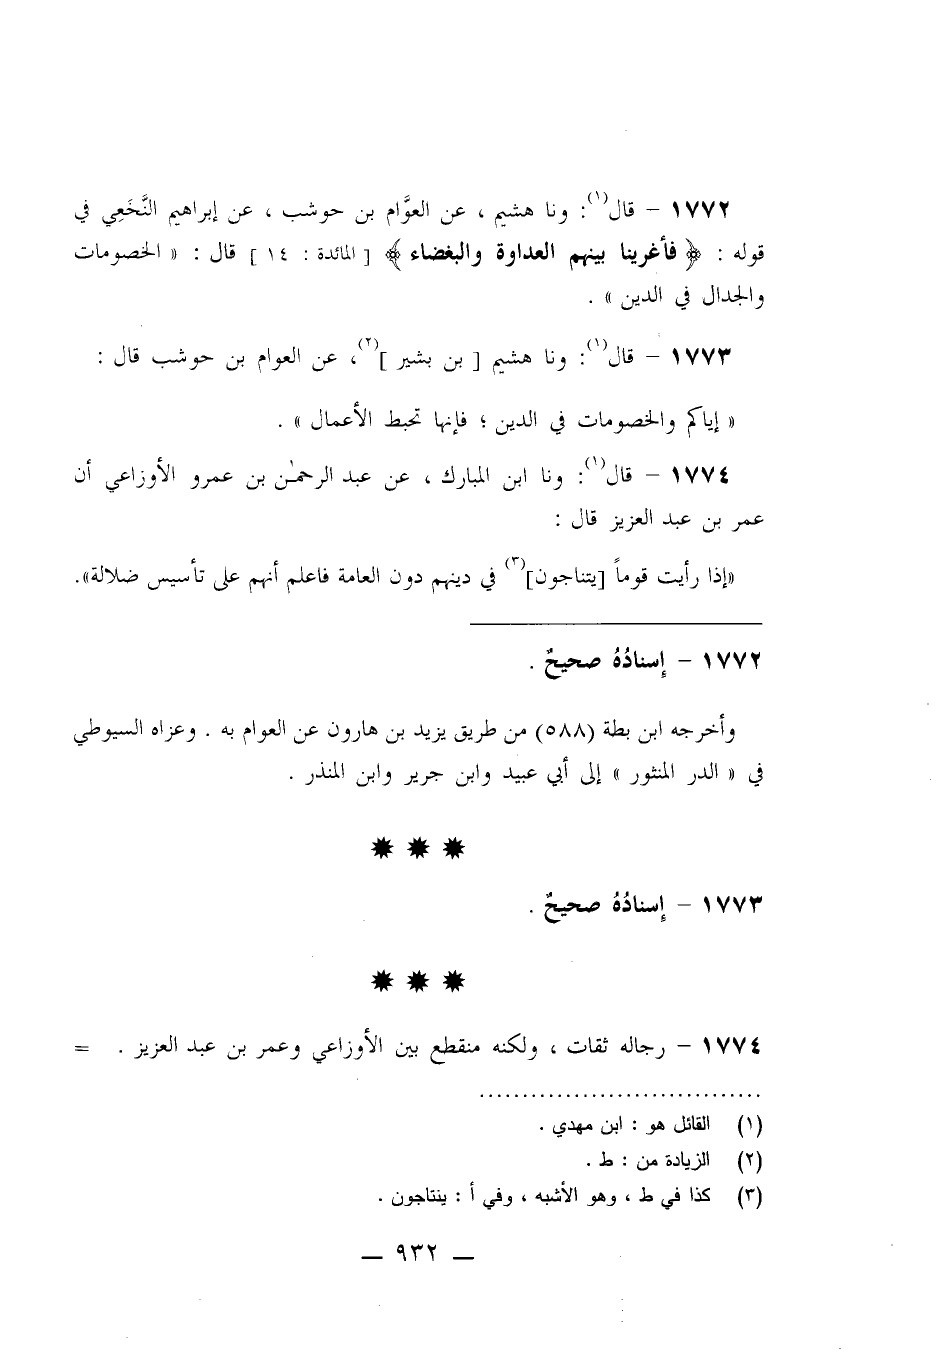 ١٧٧٢ – قال(١): ونا هشيم ، عن العوَّام بن حوشب ، عن إبراهيم النَّخَعِي في
قوله : ﴿ فأغرينا بينهم العداوة والبغضاء ﴾ [ المائدة : ١٤ ] قال : « الخصومات
والجدال في الدين » .
١٧٧٣ – قال(١): ونا هشيم [ بن بشير ](٢)، عن العوام بن حوشب قال :
« إياكم والخصومات في الدين ؛ فإنها تحبط الأعمال » .
١٧٧٤ – قال(١): ونا ابن المبارك ، عن عبد الرحمٰن بن عمرو الأوزاعي أن
عمر بن عبد العزيز قال :
«إذا رأيت قوماً [يتناجون](٣) في دينهم دون العامة فاعلم أنهم على تأسيس ضلالة».
١٧٧٢ – إسنادُهُ صحيحٌ .
وأخرجه ابن بطة (٥٨٨) من طريق يزيد بن هارون عن العوام به . وعزاه السيوطي
في « الدر المنثور » إلى أبي عبيد وابن جرير وابن المنذر .
١٧٧٣ – إسنادُهُ صحيحٌ .
١٧٧٤ – رجاله ثقات ، ولكنه منقطع بين الأوزاعي وعمر بن عبد العزيز . =
(١) القائل هو : ابن مهدي .
(٢) الزيادة من : ط .
(٣) كذا في ط ، وهو الأشبه ، وفي أ : ينتاجون .
— ٩٣٢ —